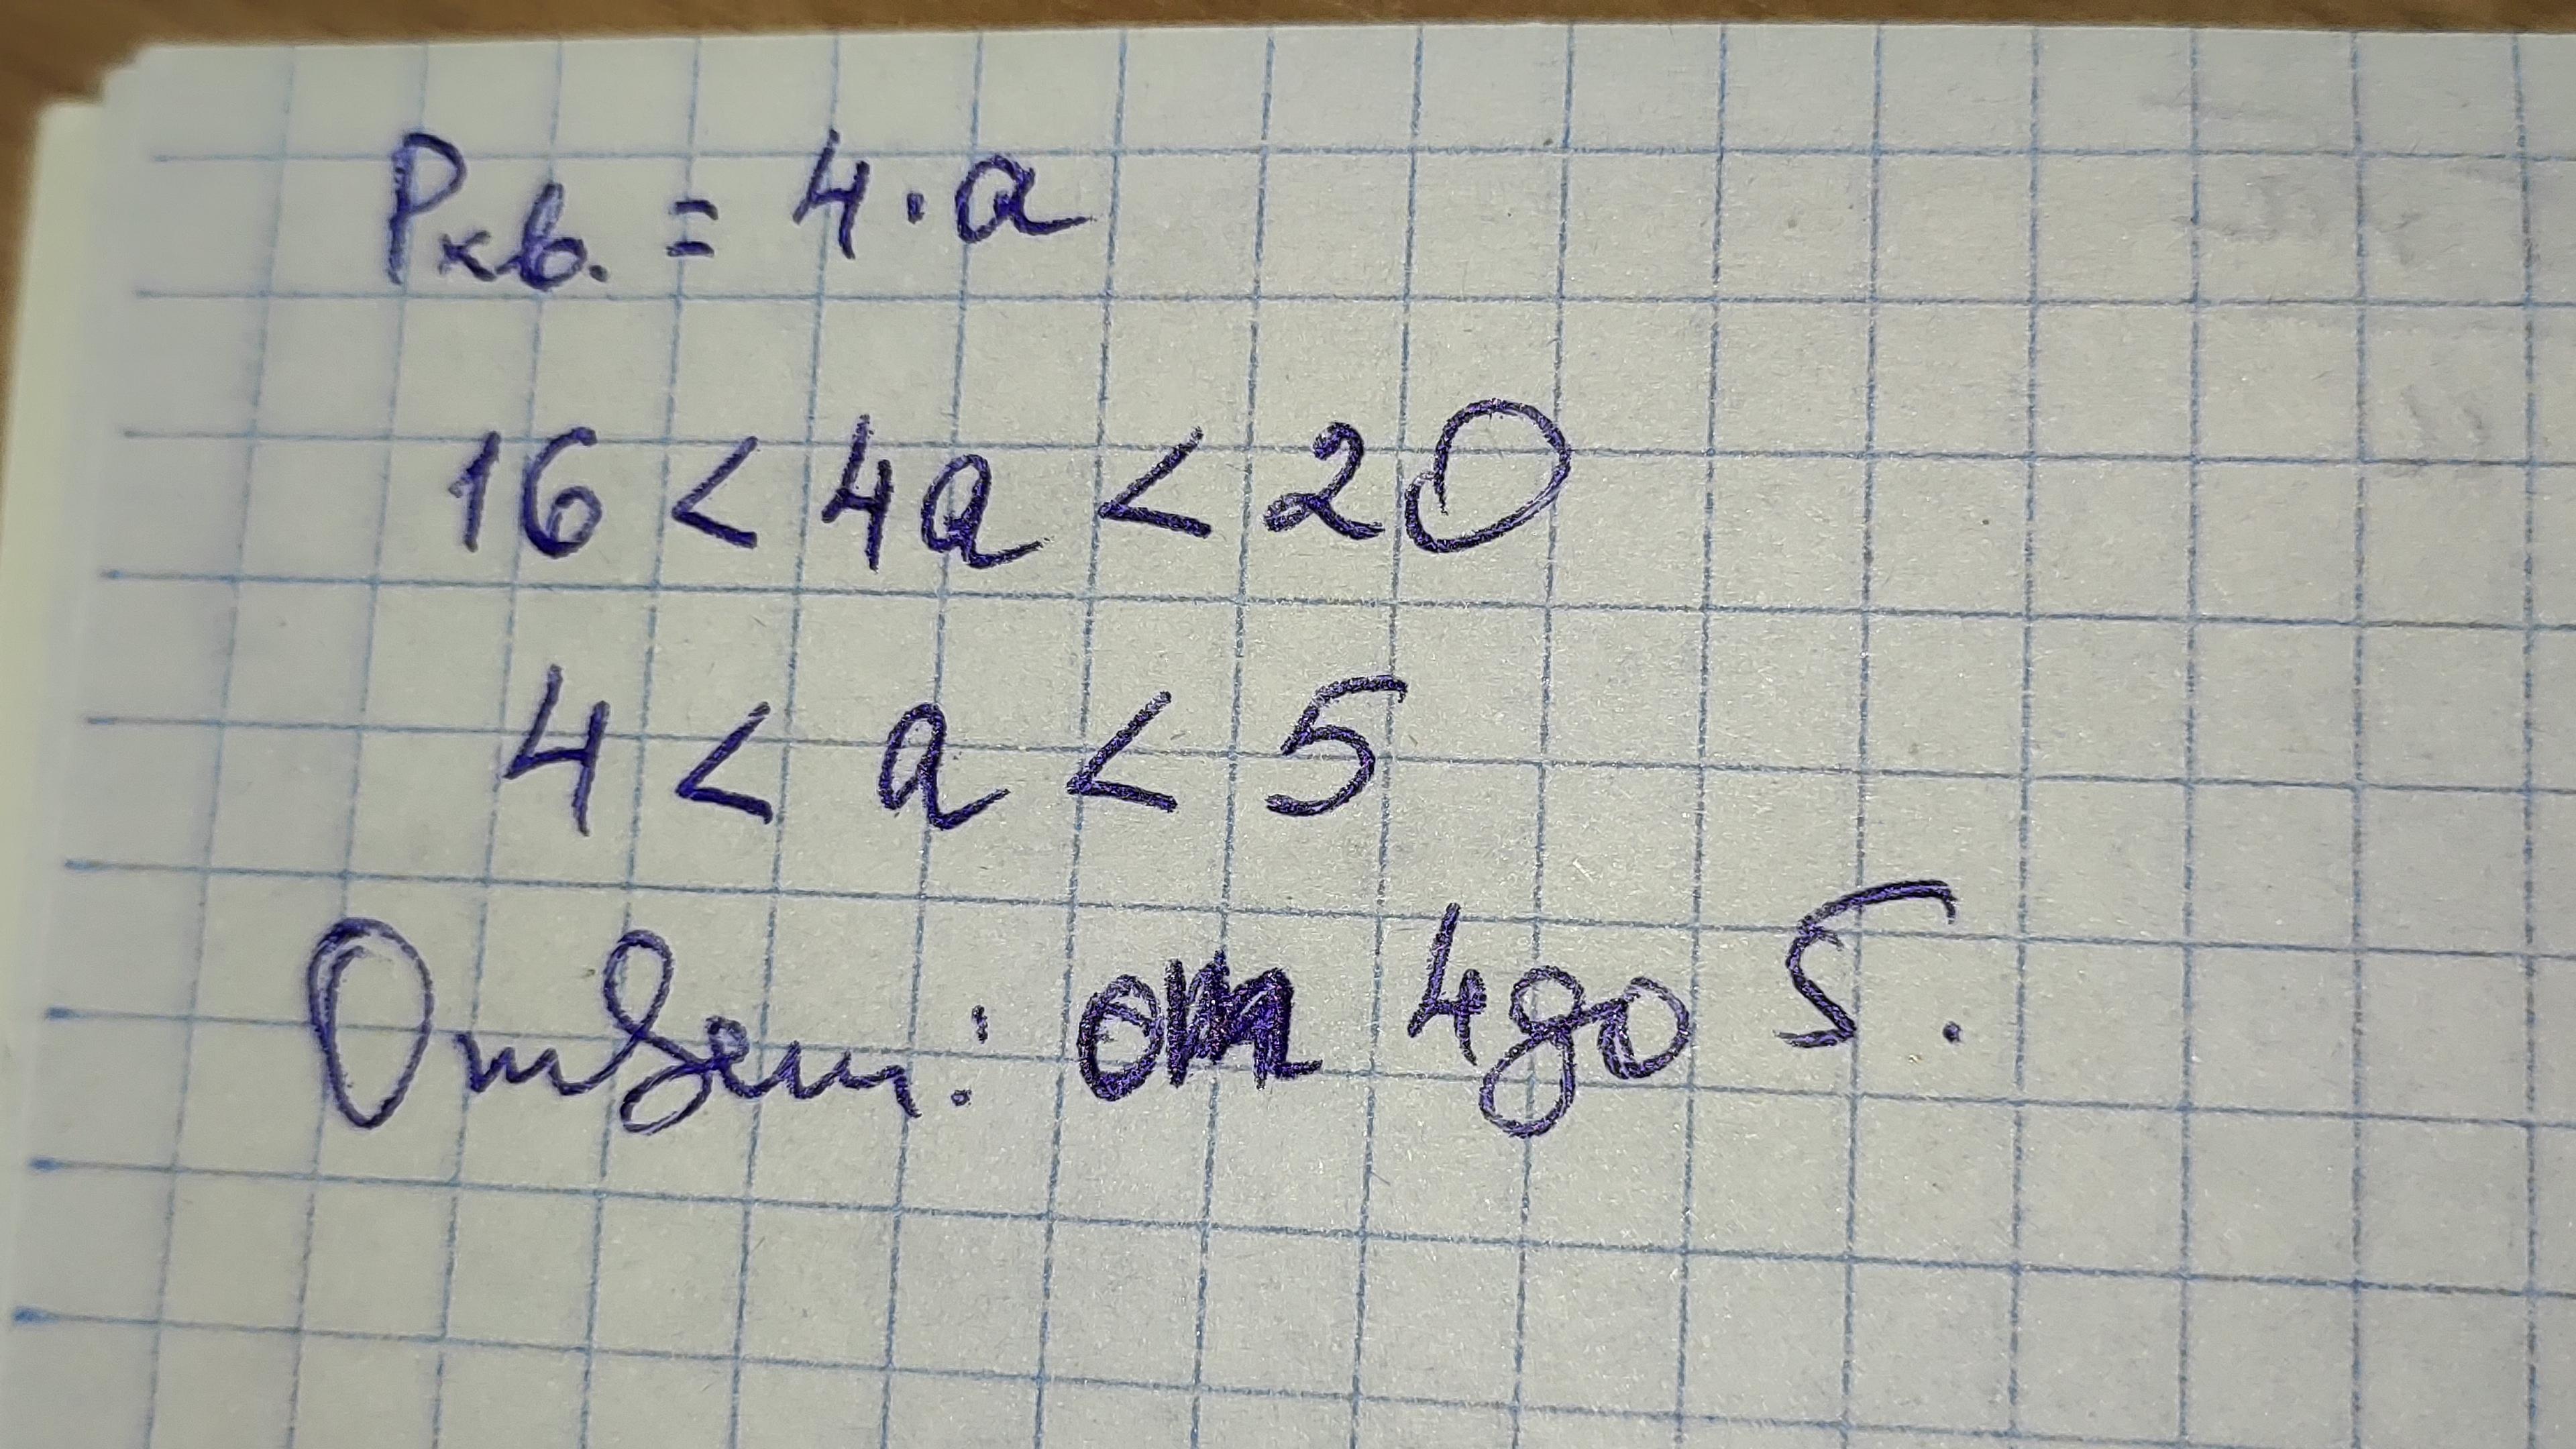 Pкв. = 4·a
16 < 4a < 20
4 < a < 5
Ответ: от 4 до 5.